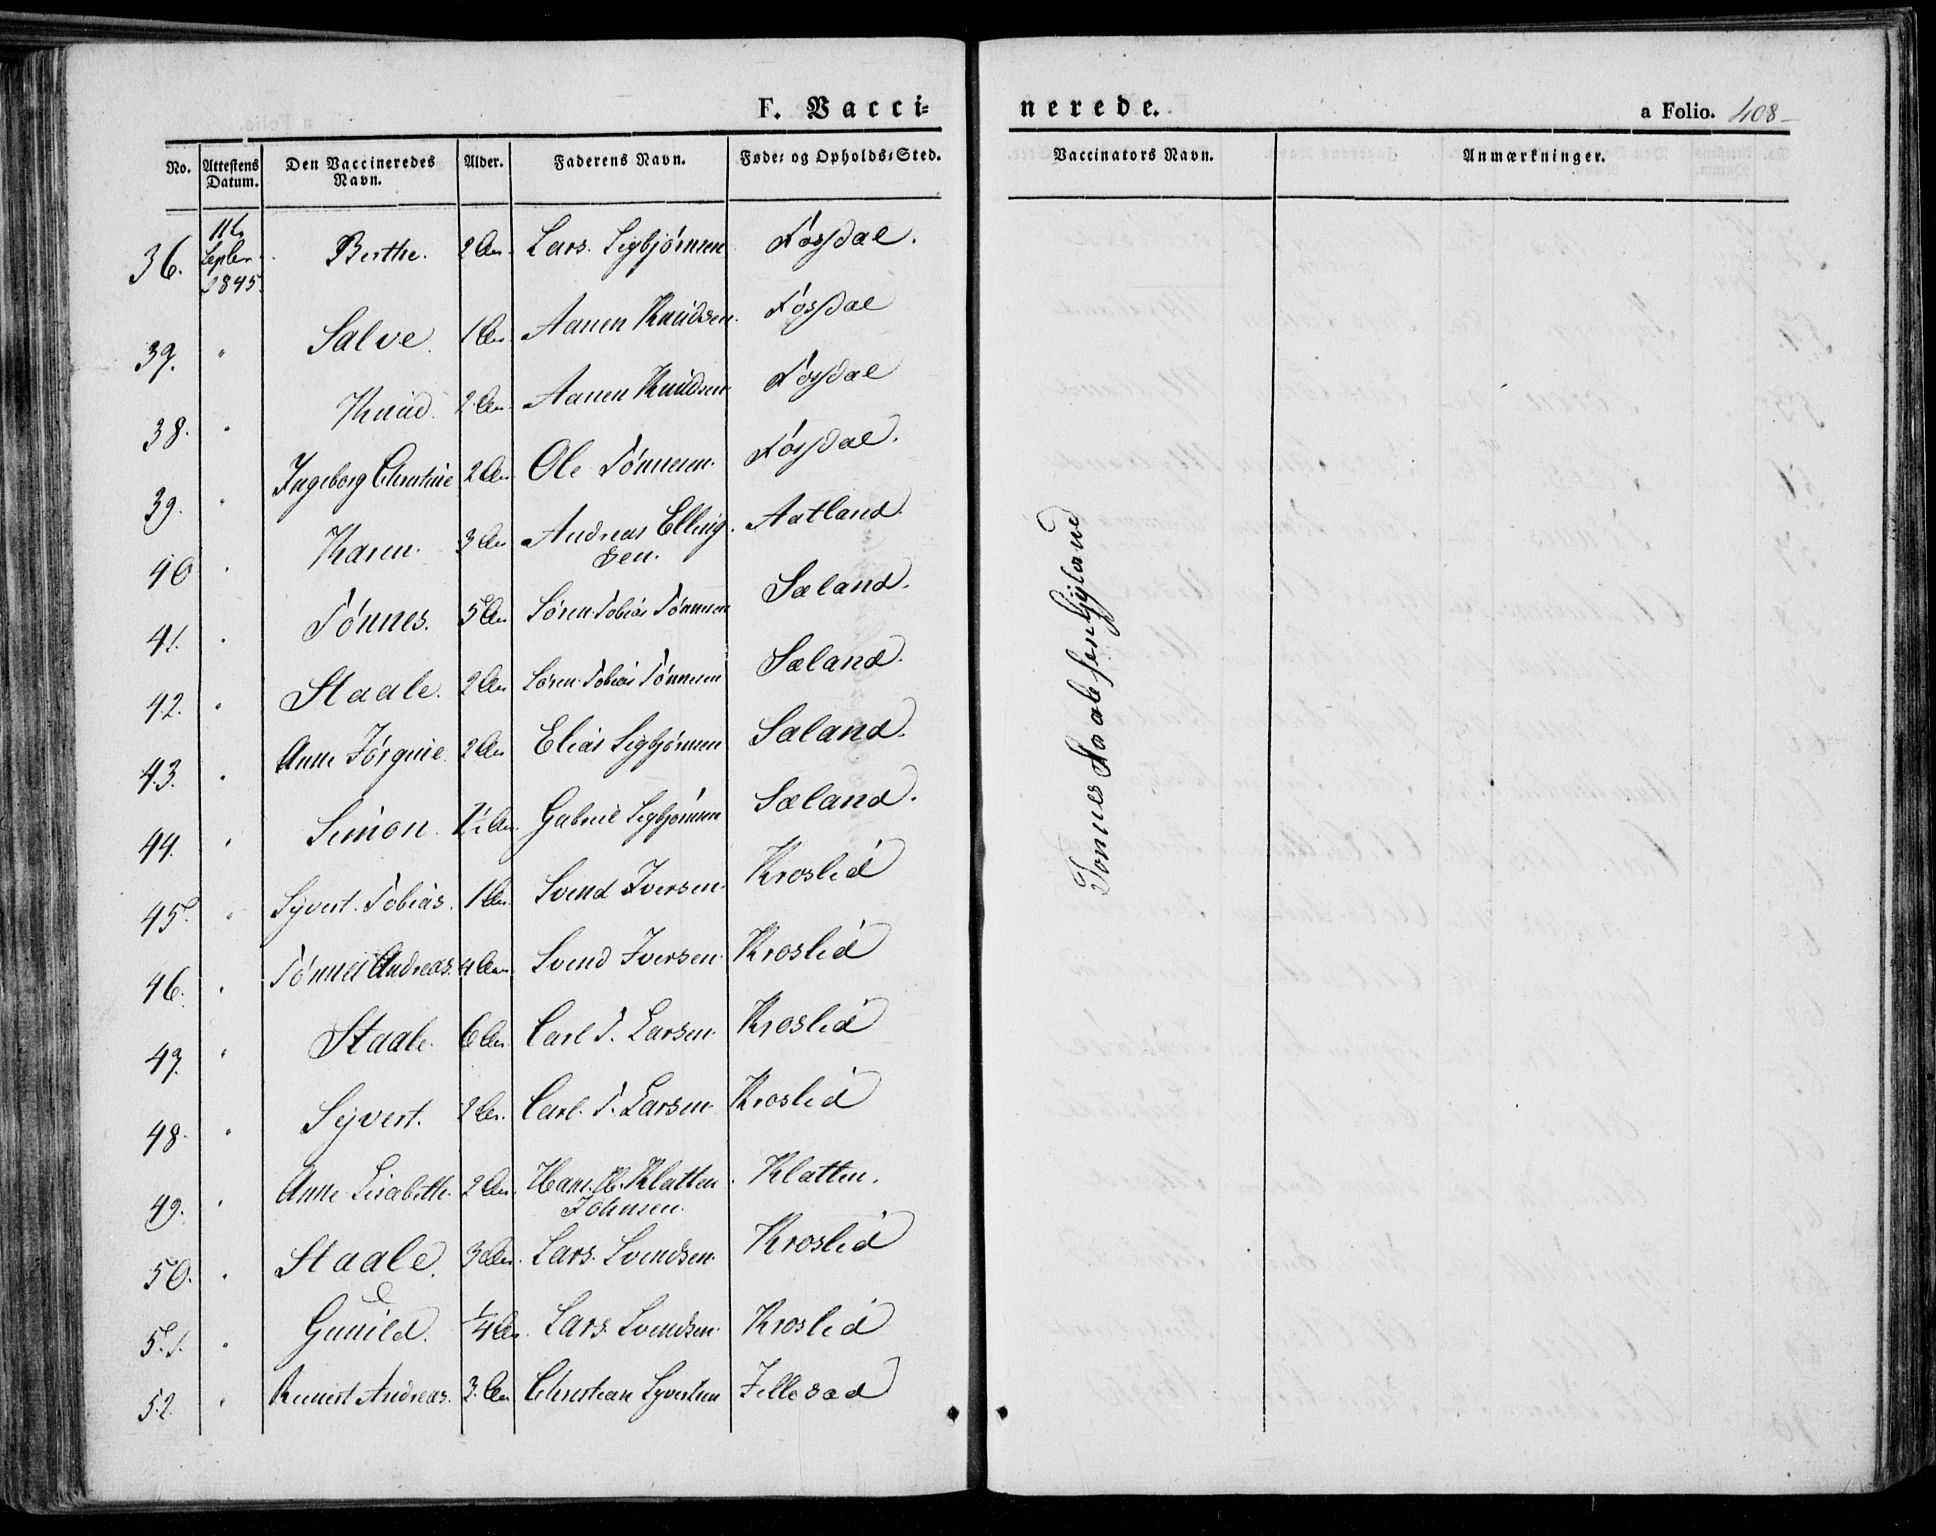 F. Vacci-
nerede.
a Folio. 408
No. Attestens Datum. Den Vaccineredes Navn. Alder. Faderens Navn. Føde- og Opholds-Sted. Vaccinators Navn. Anmærkninger.
36. Septbr 1845. Berthe. 2 Aar. Lars Sigbjörnsen Fosdal.
37. " Salve. 1 Aar Aanen Knudsen. Fosdal
38. " Knud. 2 Aar. Aanen Knudsen Fosdal
39. " Ingeborg Christine 2 Aar Ole Tönnesen. Fosdal.
40 " Karen. 3 Aar Andreas Elling
sen. Aatland.
41. " Tönnes. 5 Aar Sören Tobias Tönnesen Sæland.
42. " Staale. 2 Aar Sören Tobias Tönnesen Sæland.
43. " Anne Jörgine. 2 Aar Elias Sigbjörnsen Sæland.
44. " Simon. 1½ Aar. Gabriel Sigbjörnsen Sæland.
45. " Syvert Tobias. 1 Aar. Svend Iversen. Kroslid
46. " Tönnes Andreas. 4 Aar. Svend Iversen. Kroslid
47. " Staale. 6 Aar. Carl T. Larsen. Kroslid
48. " Syvert. 2 Aar. Carl T. Larsen. Kroslid
49. " Anne Lisabeth. 2 Aar. Hans Klatten
Johnsen. Klatten.
50. " Staale. 3 Aar. Lars Svendsen. Kroslid
51. " Gunild. 1/4 Aar. Lars Svendsen. Kroslid
52. " Reinert Andreas. 3 Aar. Christian Syvertsen
Tönnes Staalesen Gyland